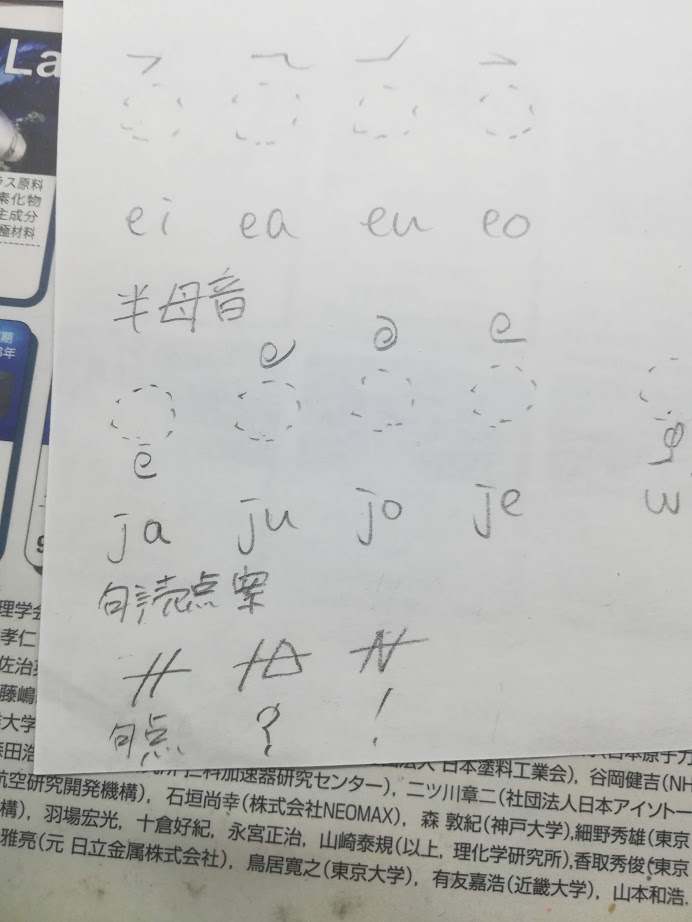 La
ラス原料
素化物
主成分
極材料
ei ea eu eo
半母音
ja ju jo je w
句読点案
句点 ? !
理学会
孝仁
佐治
藤嶋
大学
日本塗料工業会), 谷岡健吉(NH
航空研究開発機構), 石垣尚幸(株式会社NEOMAX), 二ツ川章二(社団法人日本アイソトー
構), 羽場宏光, 十倉好紀, 永宮正治, 山崎泰規(以上, 理化学研究所),香取秀俊(東京
雅亮(元 日立金属株式会社), 鳥居寛之(東京大学), 有友嘉浩(近畿大学), 山本和浩,
森 敦紀(神戸大学),細野秀雄(東京
仁科加速器研究センター),